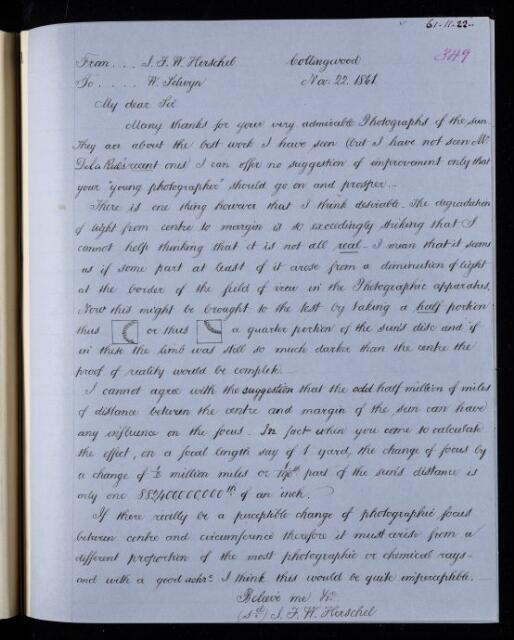 61-11-22
349
From ... J. F. W. Herschel Collingwood
To ..... W. Selwyn Nov. 22. 1861
My dear Sir
Many thanks for your very admirable Photographs of the sun.
They are about the best work I have seen (but I have not seen Mr
De La Rue's recent ones) I can offer no suggestion of improvement only that
your "young photographer" should go on and prosper...
There is one thing however that I think desirable. The degradation
of light from centre to margin is so exceedingly striking that I
cannot help thinking that it is not all real - I mean that it seems
as if some part at least of it arose from a diminution of light
at the border of the field of view in the Photographic apparatus.
Now this might be brought to the test by taking a half portion
thus or thus a quarter portion of the sun's disc and if
in these the limb was still so much darker than the centre the
proof of reality would be complete.
I cannot agree with the suggestion that the odd half million of miles
of distance between the centre and margin of the sun can have
any influence on the focus. In fact when you come to calculate
the effect, on a focal length say of 1 yard, the change of focus by
a change of ½ million miles or th part of the sun's distance is
only one th of an inch.
If there really be a perceptible change of photographic focus
between centre and circumference therefore it must arise from a
different proportion of the most photographic or chemical rays -
and with a good achr: I think this would be quite imperceptible.
Believe me &c.
(sd) J. F. W. Herschel